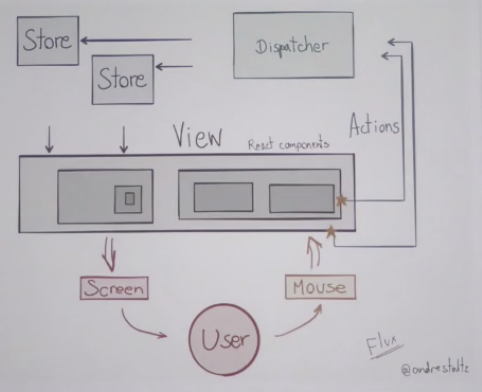 Store
Dispatcher
Store
View
React components
Actions
Screen
Mouse
User
Flux
@andrestaltz